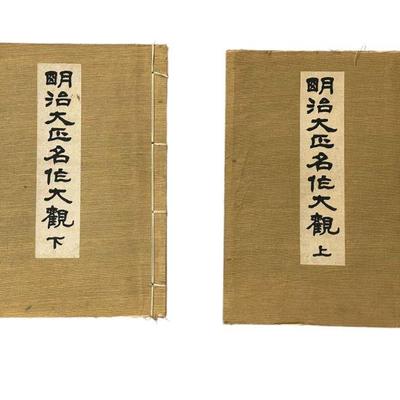 明治大正名作大觀 上
明治大正名作大觀 下